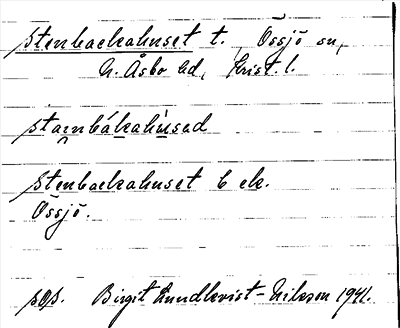 Stenbackahuset t. Össjö sn,
N. Åsbo hd, Krist. l.
stainbákahùsad
Stenbackahuset b ek.
Össjö.
pop. Birgit Lundkvist-Nilsson 1941.